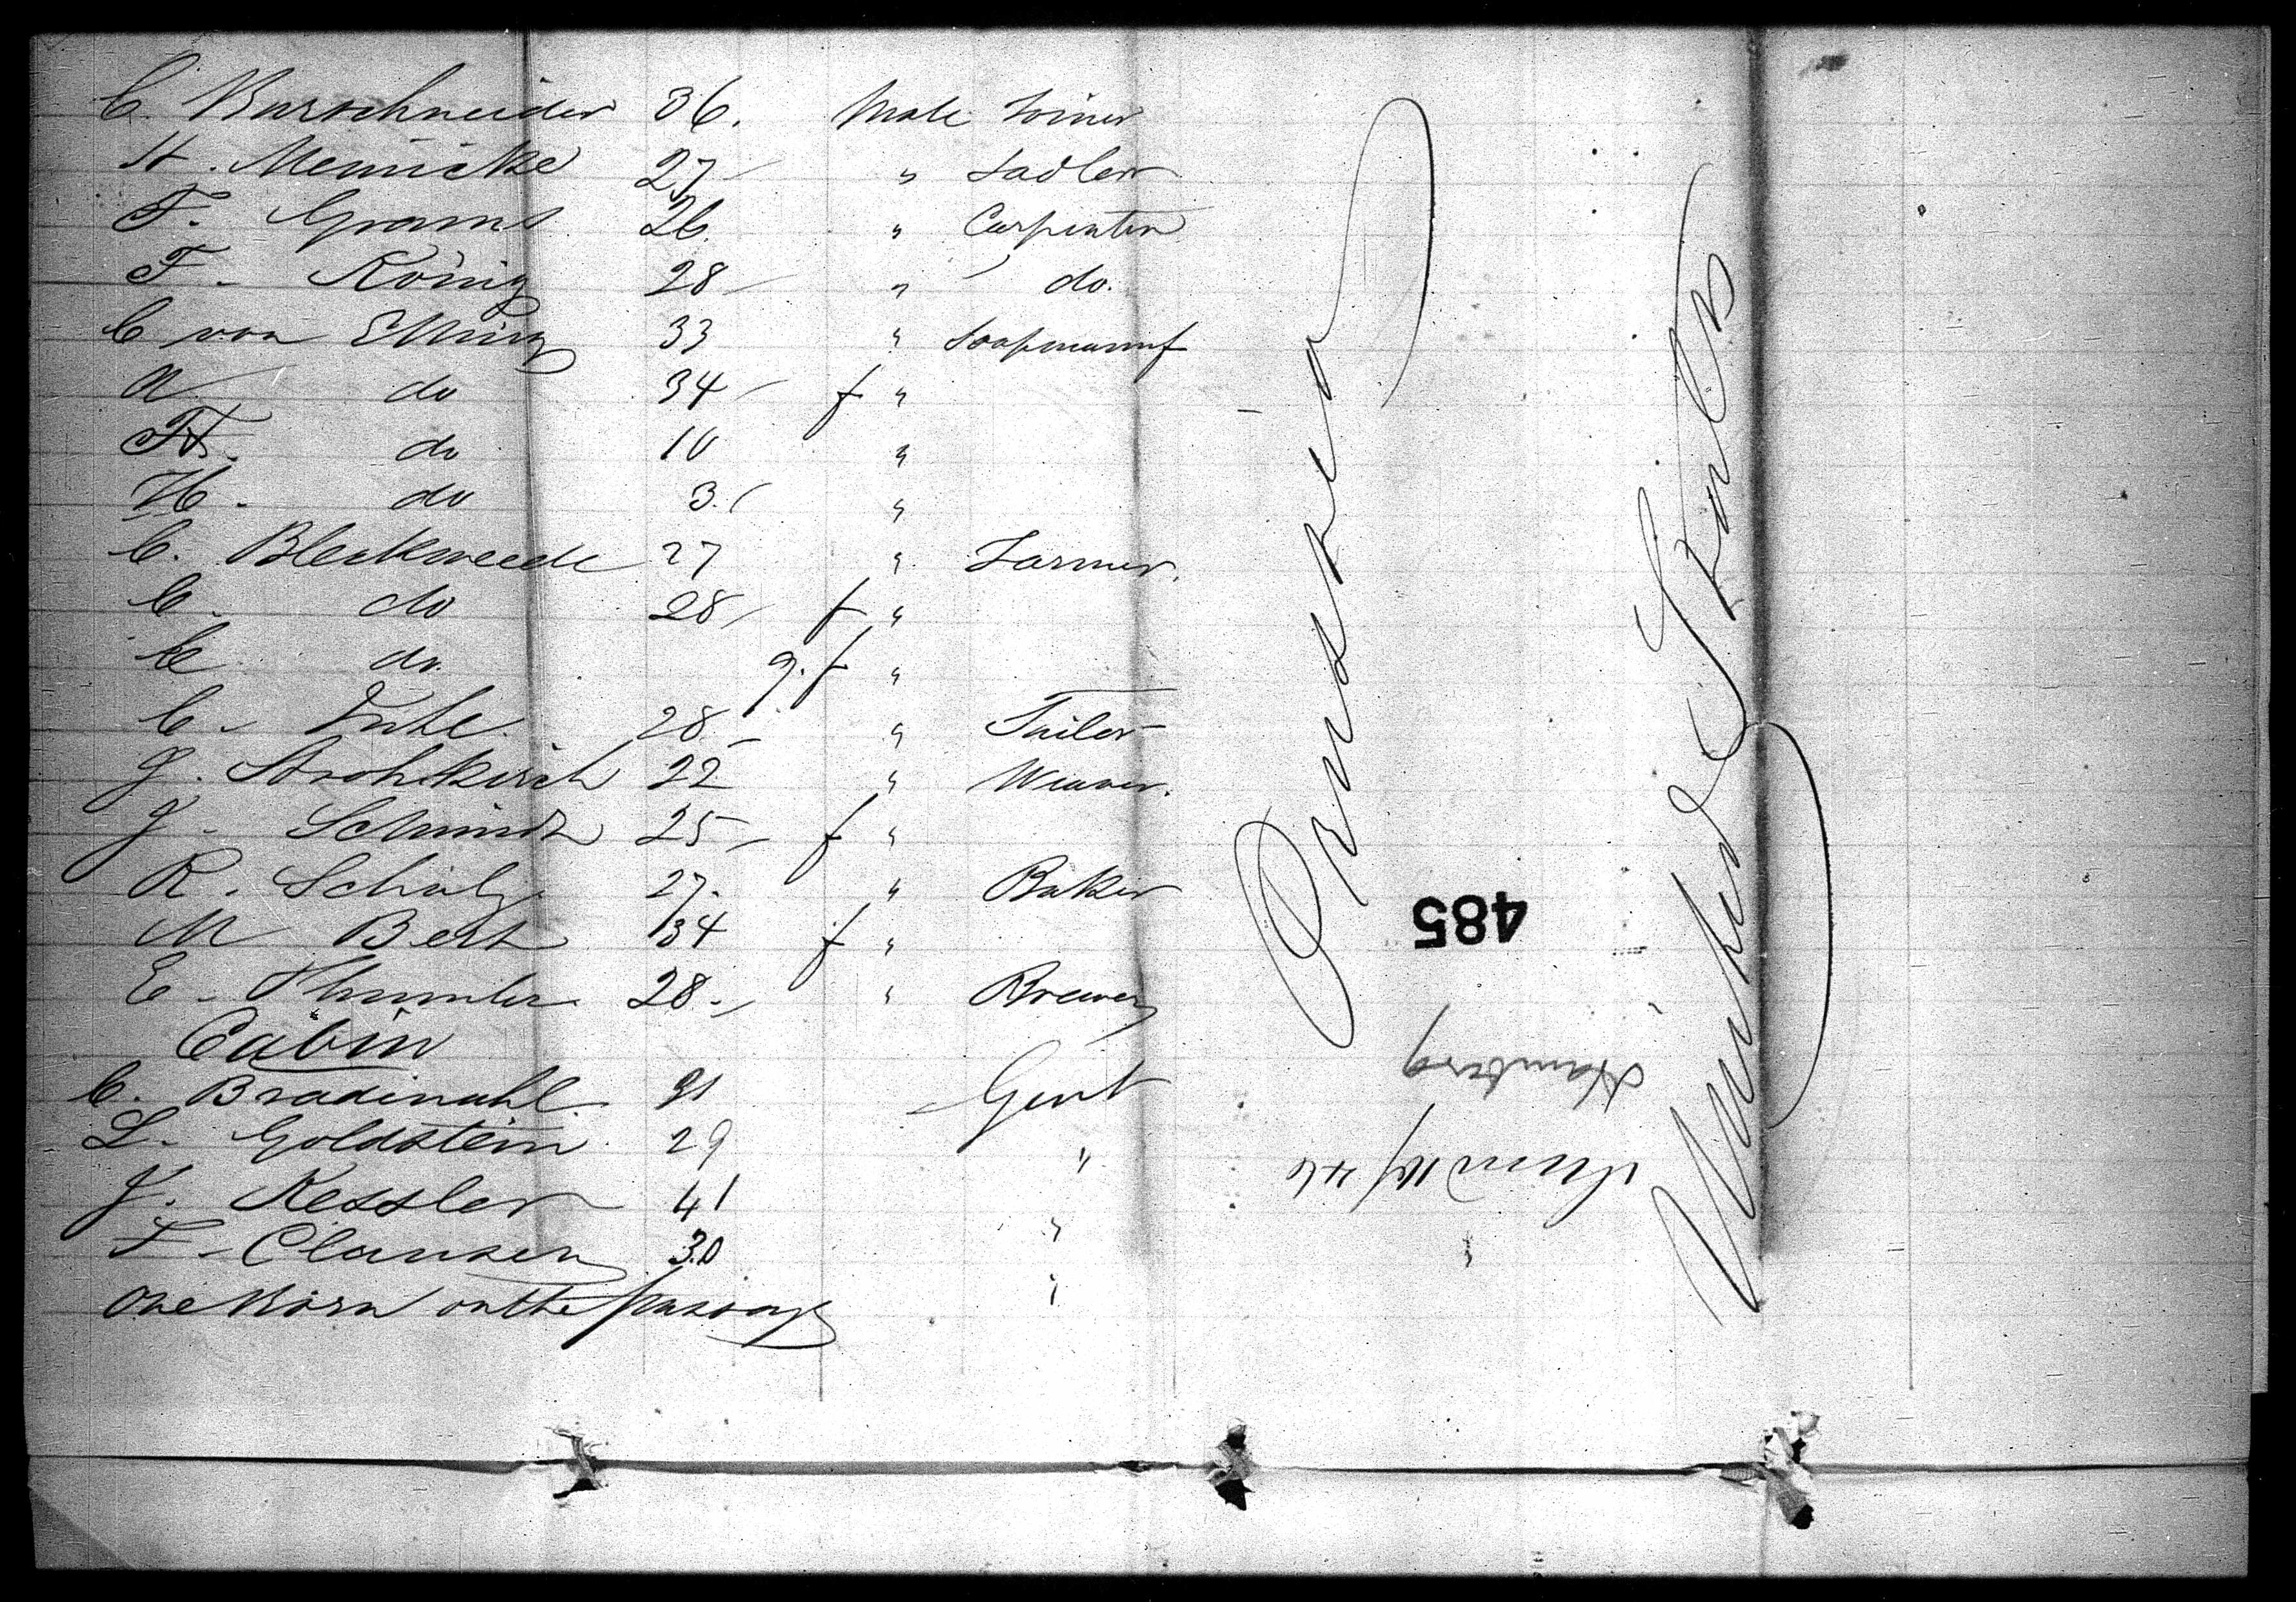 C. Burschneider 36. Male Joiner
H. Meinicke 27 " Sadler
F. Grams 26 " Carpenter
F. König 28 " do.
C von Elling 33 " Soapmanuf
A do 34 f "
Fr. do 10 "
H. do 3. "
C. Bleckweede 27 " Farmer.
C. do 28 f "
C do. 9. f "
C. 28. " Tailor
G. Strohkirch 22 " Weaver.
J. Schmidt 25 f "
R. Schulz 27. " Baker
M Bert 34 f "
E. 28. " Brewer
Cabin
C. Bradenahl. 31 Gent
L. Goldstein 29 "
J. Kessler 41 "
F. Clausen 30 "
one Born on the passage
Prussia
485
Hamburg